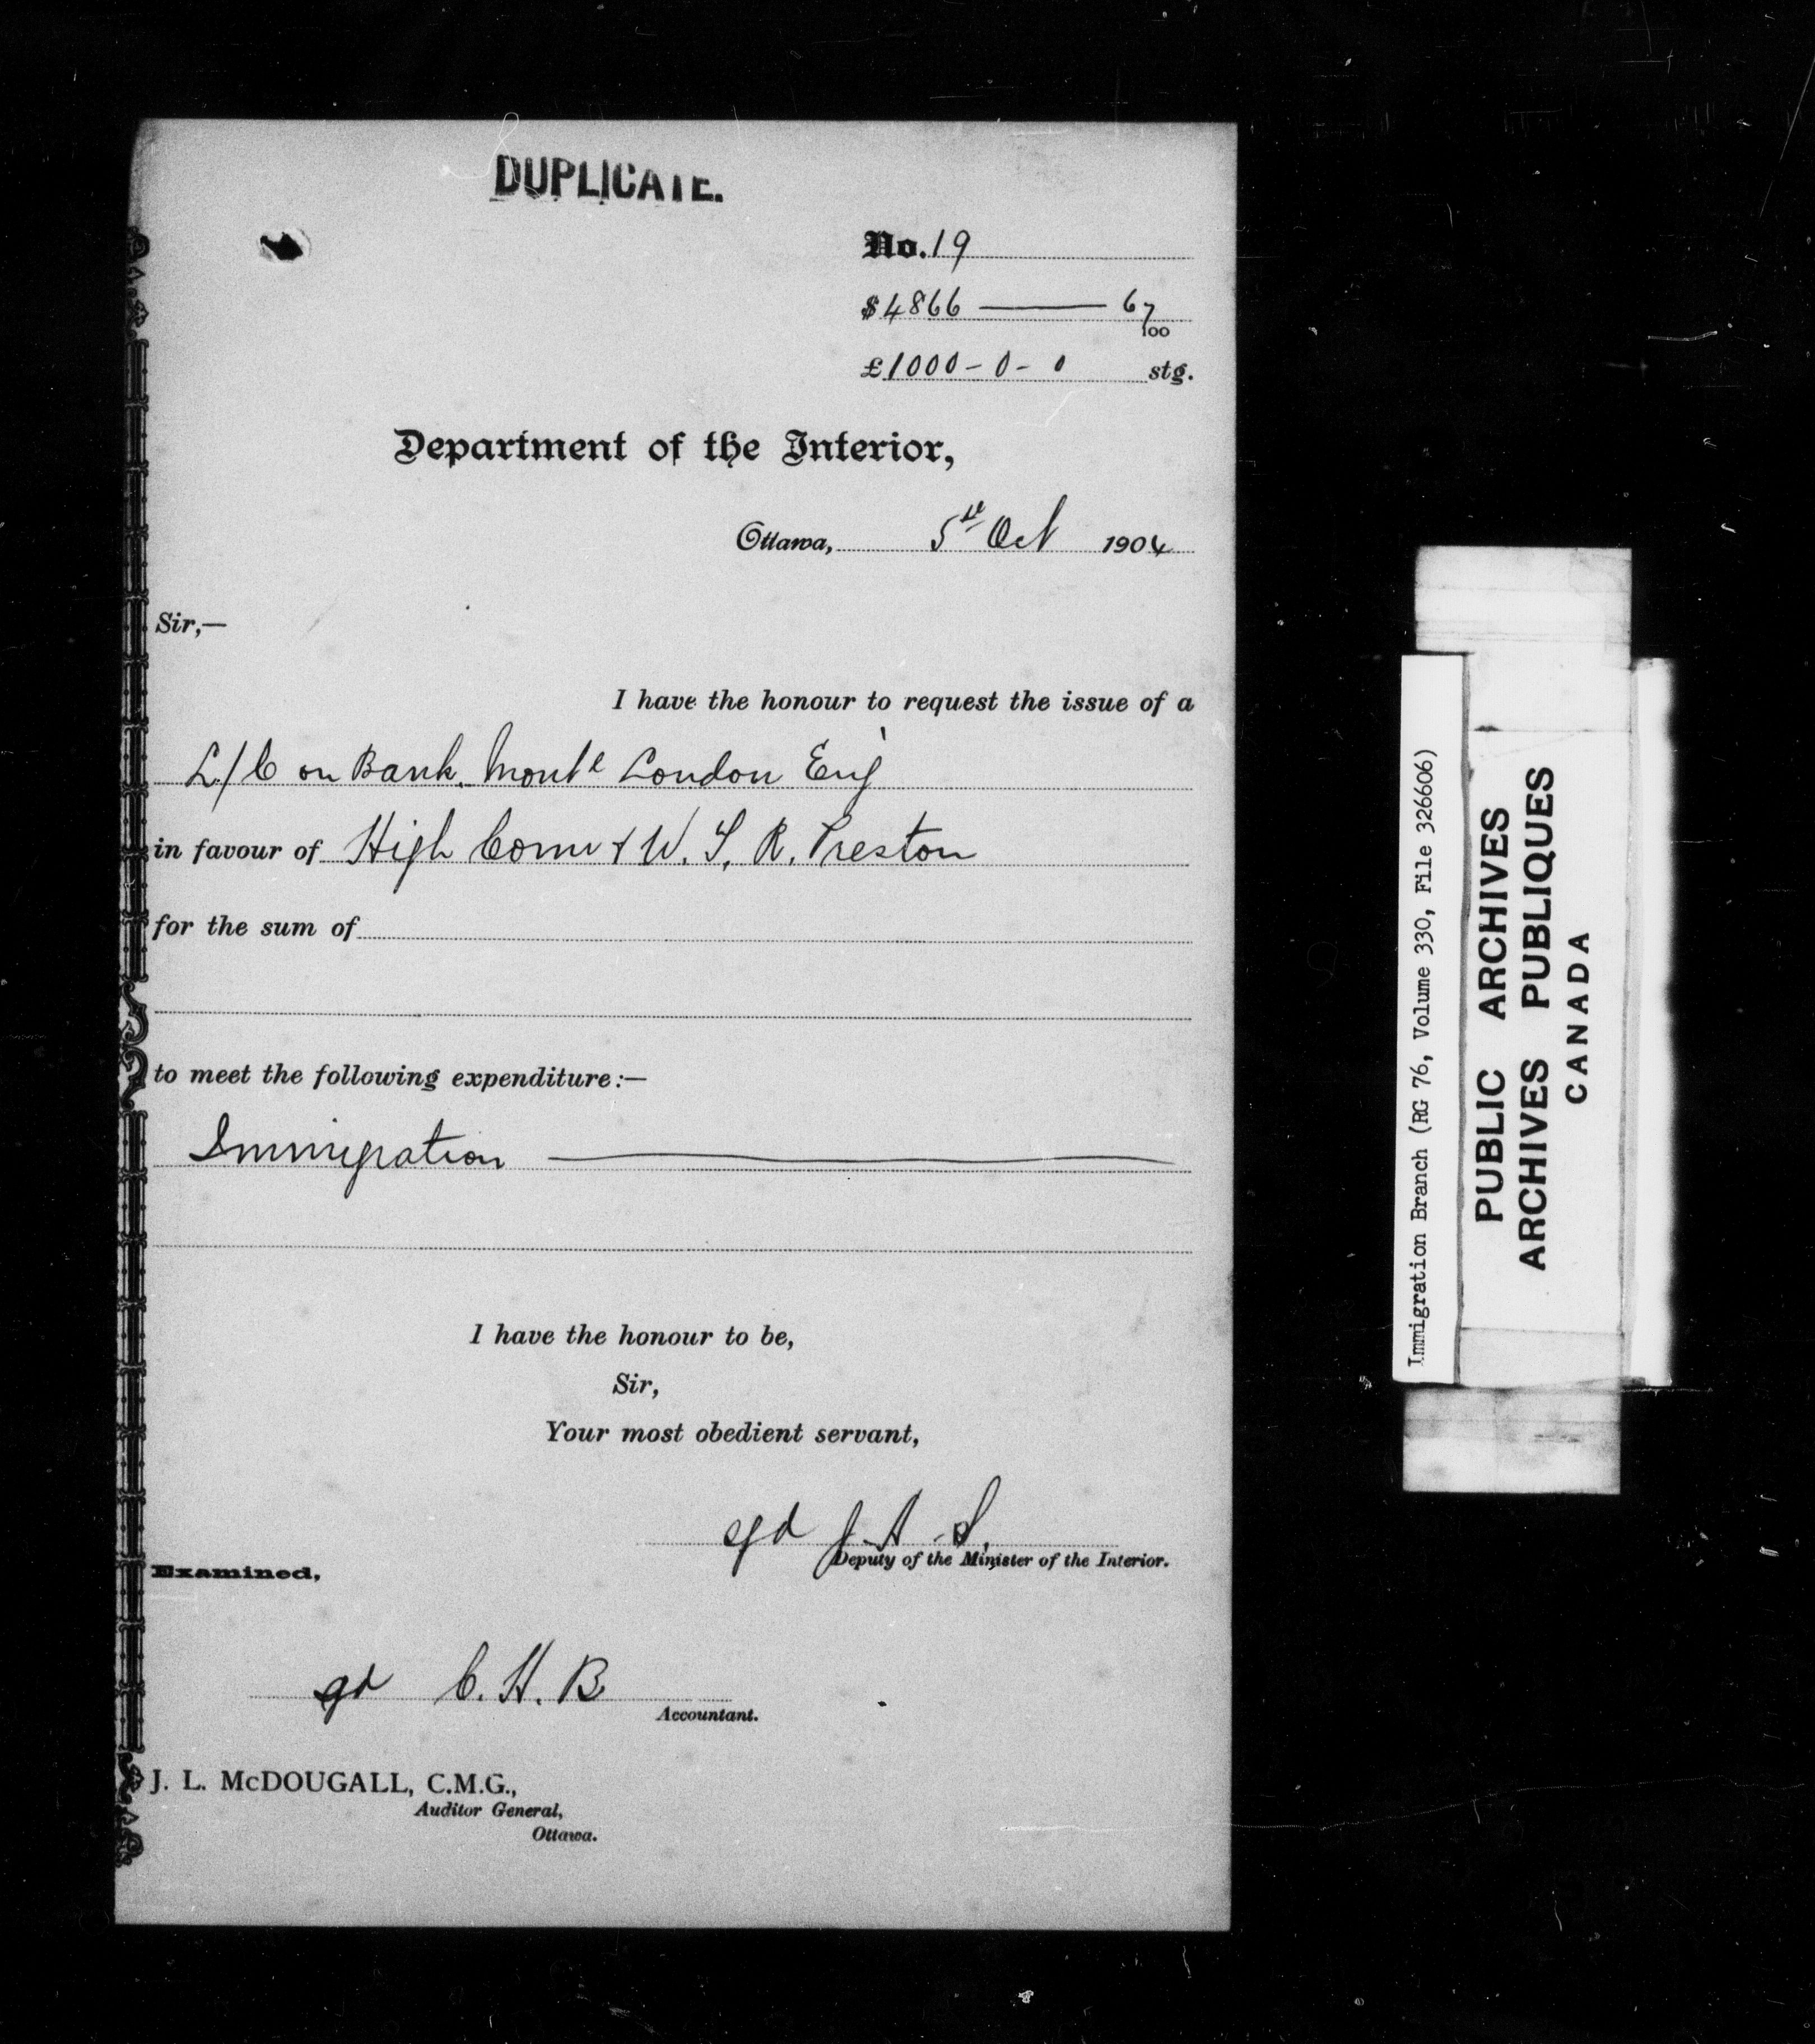 DUPLICATE.
No. 19
$4866 — 67/100
£1000-0-0 stg.
Department of the Interior,
Ottawa, 5th Oct 1904
Sir,—
I have the honour to request the issue of a
L/C on Bank Montl London Eng
in favour of High Comr & W. T. R. Preston
for the sum of
to meet the following expenditure:—
Immigration —
I have the honour to be,
Sir,
Your most obedient servant,
sgd J. A. S.
Deputy of the Minister of the Interior.
Examined,
sgd C. H. B
Accountant.
J. L. McDOUGALL, C.M.G.,
Auditor General,
Ottawa.
Immigration Branch (RG 76, Volume 330, File 326606)
PUBLIC ARCHIVES
ARCHIVES PUBLIQUES
CANADA